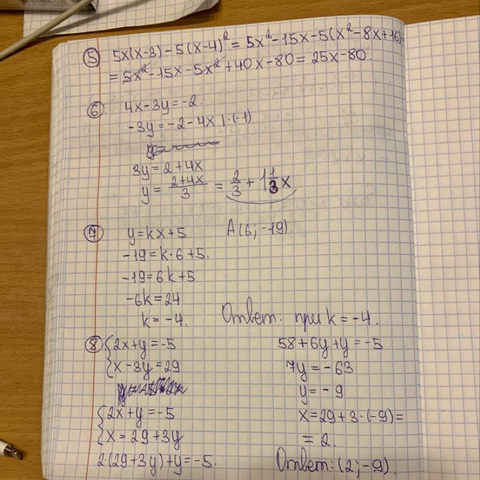 ⑤ 5x(x-3)-5(x-4)² = 5x²-15x-5(x²-8x+16)=
= 5x²-15x-5x²+40x-80 = 25x-80
⑥ 4x-3y=-2.
-3y=-2-4x | ·(-1)
3y=2+4x
y= (2+4x)/3 = 2/3 + 1 1/3 x
⑦ y=kx+5 A(6;-19)
-19=k·6+5.
-19=6k+5
-6k=24
k=-4. Ответ: при k=-4.
⑧ {2x+y=-5
{x-3y=29
{2x+y=-5
{x=29+3y
2(29+3y)+y=-5.
58+6y+y=-5
7y=-63
y=-9
x=29+3·(-9)=
= 2.
Ответ: (2;-9).